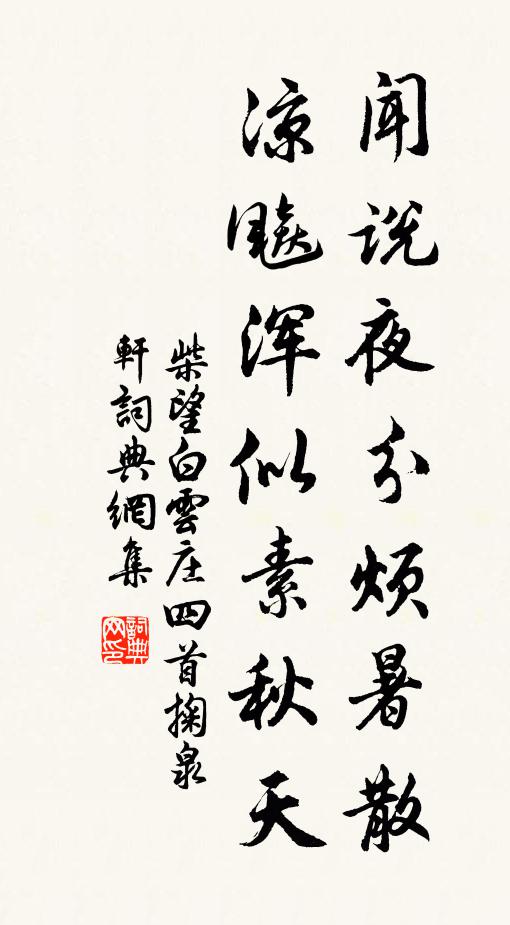 闻说夜分烦暑散
凉飚浑似素秋天
柴望白雲庄四首掬泉
軒詞典網集
詞典
网印